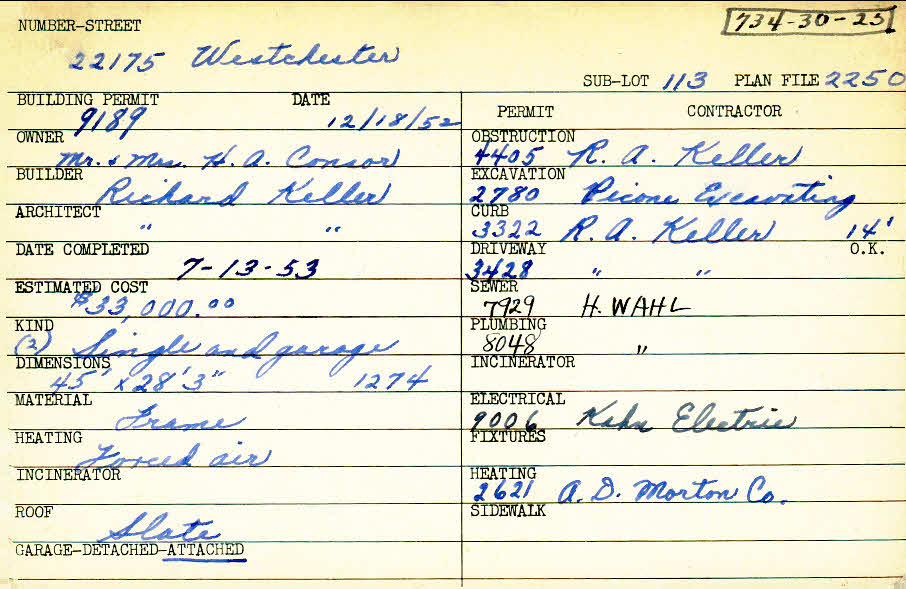 734-30-25
NUMBER-STREET
22175 Westchester
SUB-LOT 113 PLAN FILE 2250
BUILDING PERMIT DATE
9189 12/18/52
OWNER
Mr. & Mrs. H. A. Consor
BUILDER
Richard Keller
ARCHITECT
" "
DATE COMPLETED
7-13-53
ESTIMATED COST
$33,000.00
KIND
(2) Single and garage
DIMENSIONS
45' x 28'3" 1274
MATERIAL
Frame
HEATING
Forced air
INCINERATOR
ROOF
Slate
GARAGE-DETACHED-ATTACHED
PERMIT CONTRACTOR
OBSTRUCTION
4405 R. A. Keller
EXCAVATION
2780 Picone Excavating
CURB
3322 R. A. Keller 14'
DRIVEWAY O.K.
3428 " "
SEWER
7929 H. WAHL
PLUMBING
8048 "
INCINERATOR
ELECTRICAL
9006 Kahn Electric
FIXTURES
HEATING
2621 A. D. Morton Co.
SIDEWALK